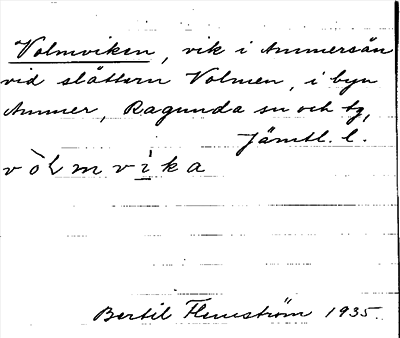 Volmviken, vik i Ammersån
vid slåttern Volmen, i byn
Ammer, Ragunda sn och tg,
Jämtl. l.
vòlmvika
Bertil Flemström 1935.